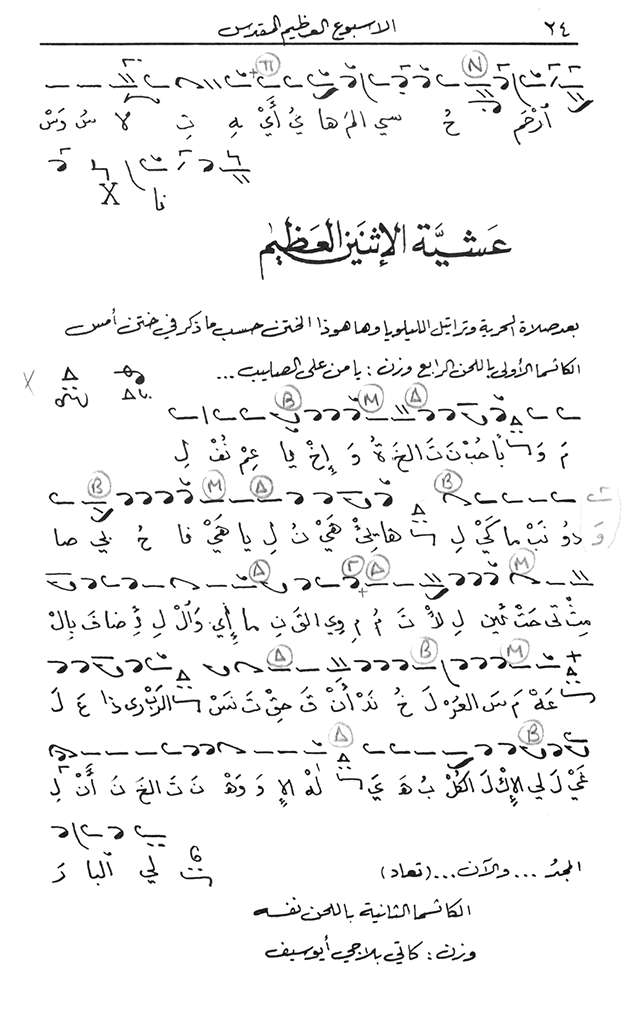 ٢٤ الاسبوع العظيم المقدس
N π
أرْحَم حُ سي المرَ ها يُ أَيْ هِ تِ لا
نا X
عَشيَّة الإثنَين العَظيم
بعد صلاة السحرية وتراتيل الليلويا وها هوذا الختن حسب ما ذكر في ختن أمس
الكاثسما الأولى باللحن الرابع وزن : يا من على الصليب ...
Δ M B
مَ وَ با حُبْ نَ تَ الخَ ةُ وَ إخْ يا عِمْ نُفْ لِ
B Δ M B
وَ دو نَبْ ما كَيْ لِ ها يئْ هَيْ نُ لِ يا هَيْ فا حُ بي صا
M Δ Γ Δ
مِثْ تى حَتْ ئين لِ لأ تَ مُ مِ وي القَ نِ ما إي وَالْ لِ ضافَ بِالْ
M B Δ
عَهْ مَ سَ العُرْ لَ خُ نَدْ أنْ قَ حِقْ تَ نَسْ ذا عَ لَ
B Δ
غَيْ لَ لي الإكْ لَ الكُلْ بُ هَ يَ لهْ الإ وَ وَهْ نَ تَ الخَ نَ أنْ لِ
لي البا رَ
المجدُ ... والآن ... (تعاد)
الكاثسما الثانية باللحن نفسه
وزن : كاتي بلاجي أيوسيف